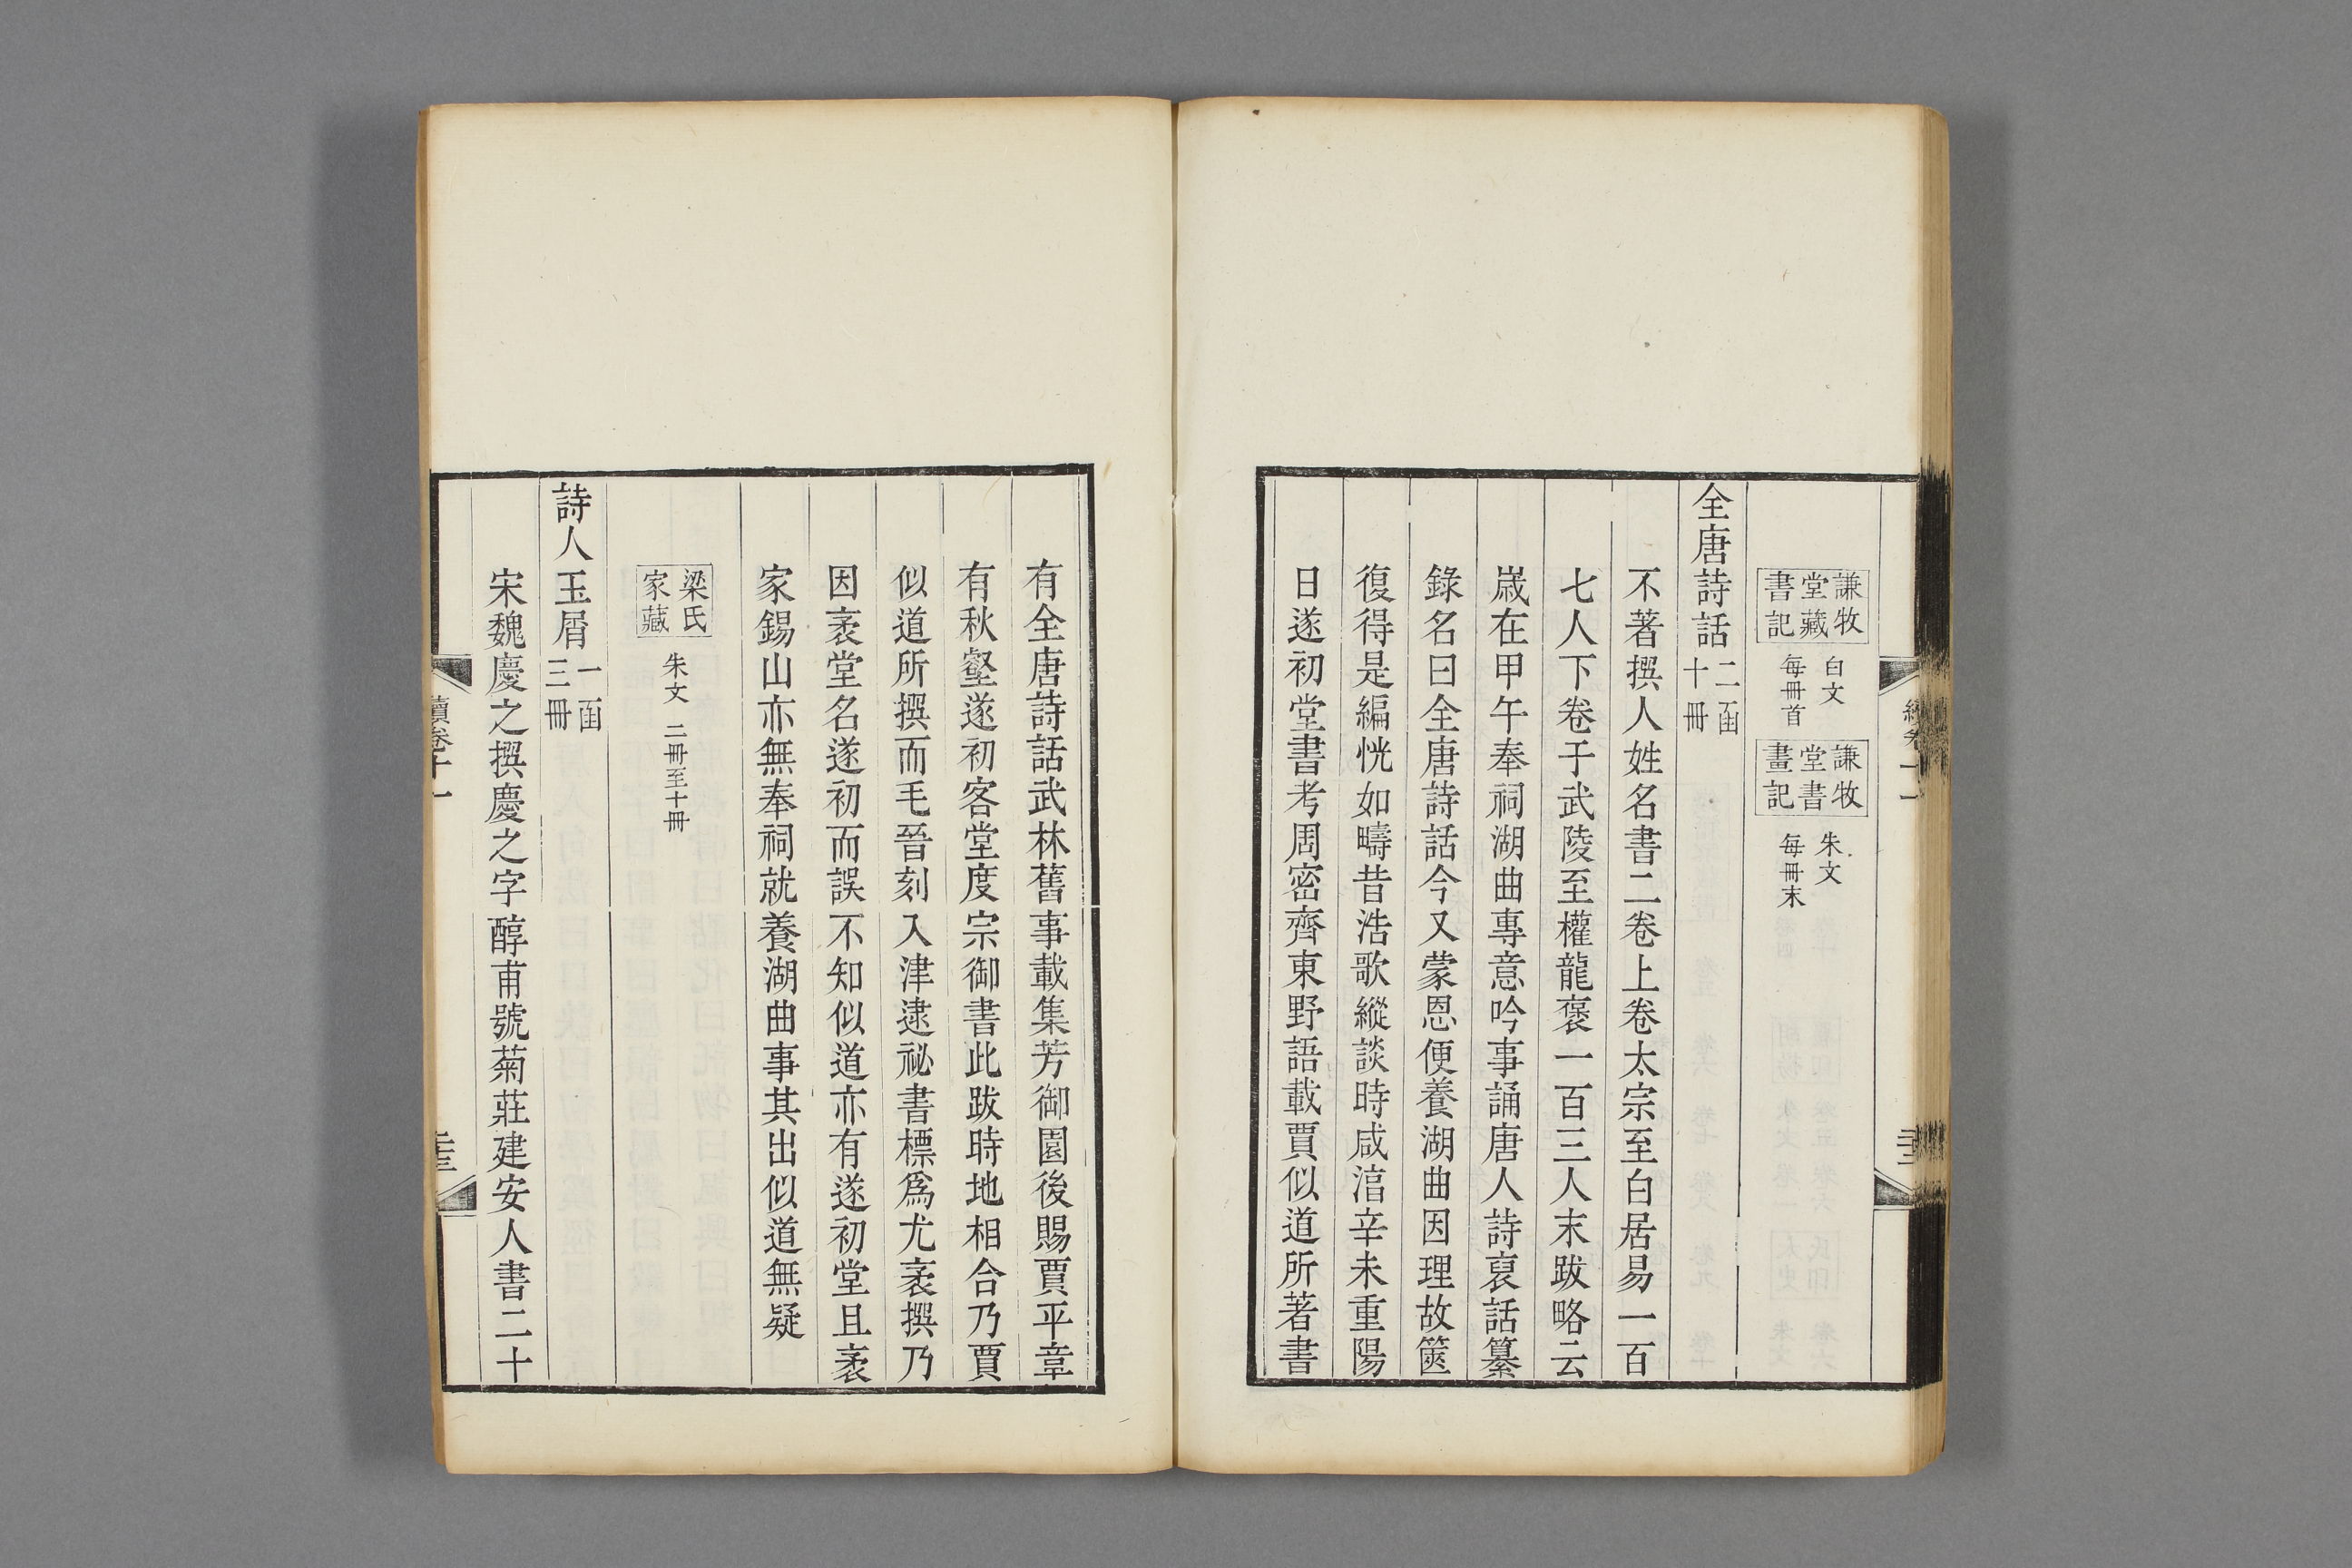 謙牧堂藏書記
白文
每冊首
謙牧堂書畫記
朱文
每冊末
全唐詩話
二函
十冊
不著撰人姓名書二卷上卷太宗至白居易一百
七人下卷于武陵至權龍褒一百三人末跋略云
嵗在甲午奉祠湖曲專意吟事誦唐人詩裒話纂
錄名曰全唐詩話今又蒙恩便養湖曲因理故篋
復得是編恍如疇昔浩歌縱談時咸淳辛未重陽
日遂初堂書考周密齊東野語載賈似道所著書
有全唐詩話武林舊事載集芳御園後賜賈平章
有秋壑遂初客堂度宗御書此跋時地相合乃賈
似道所撰而毛晉刻入津逮祕書標爲尤袤撰乃
因袤堂名遂初而誤不知似道亦有遂初堂且袤
家錫山亦無奉祠就養湖曲事其出似道無疑
梁氏家藏
朱文
二冊至十冊
詩人玉屑
一函
三冊
宋魏慶之撰慶之字醇甫號菊莊建安人書二十
續卷十一
二十三